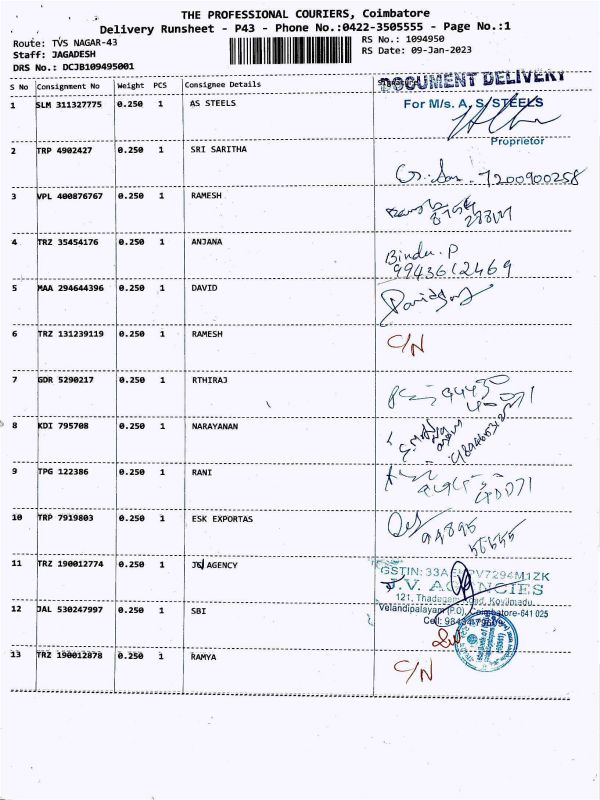 THE PROFESSIONAL COURIERS, Coimbatore
Delivery Runsheet - P43 - Phone No.:0422-3505555 - Page No.:1
Route: TVS NAGAR-43
RS No.: 1094950
Staff: JAGADESH
RS Date: 09-Jan-2023
DRS No.: DCJB109495001
S No Consignment No Weight PCS Consignee Details
DOCUMENT DELIVERY
1 SLM 311327775 0.250 1 AS STEELS
For M/s. A. S. STEELS
Proprietor
2 TRP 4902427 0.250 1 SRI SARITHA
7200900258
3 VPL 400876767 0.250 1 RAMESH
4 TRZ 35454176 0.250 1 ANJANA
Bindu. P
9943612469
5 MAA 294644396 0.250 1 DAVID
6 TRZ 131239119 0.250 1 RAMESH
C/N
7 GDR 5290217 0.250 1 RTHIRAJ
8 KDI 795708 0.250 1 NARAYANAN
9 TPG 122386 0.250 1 RANI
10 TRP 7919803 0.250 1 ESK EXPORTAS
11 TRZ 190012774 0.250 1 AGENCY
121, Thadagam Road, Kovilmadu
Velandipalayam (P.O), Coimbatore-641 025
12 JAL 530247997 0.250 1 SBI
13 TRZ 190012878 0.250 1 RAMYA
C/N